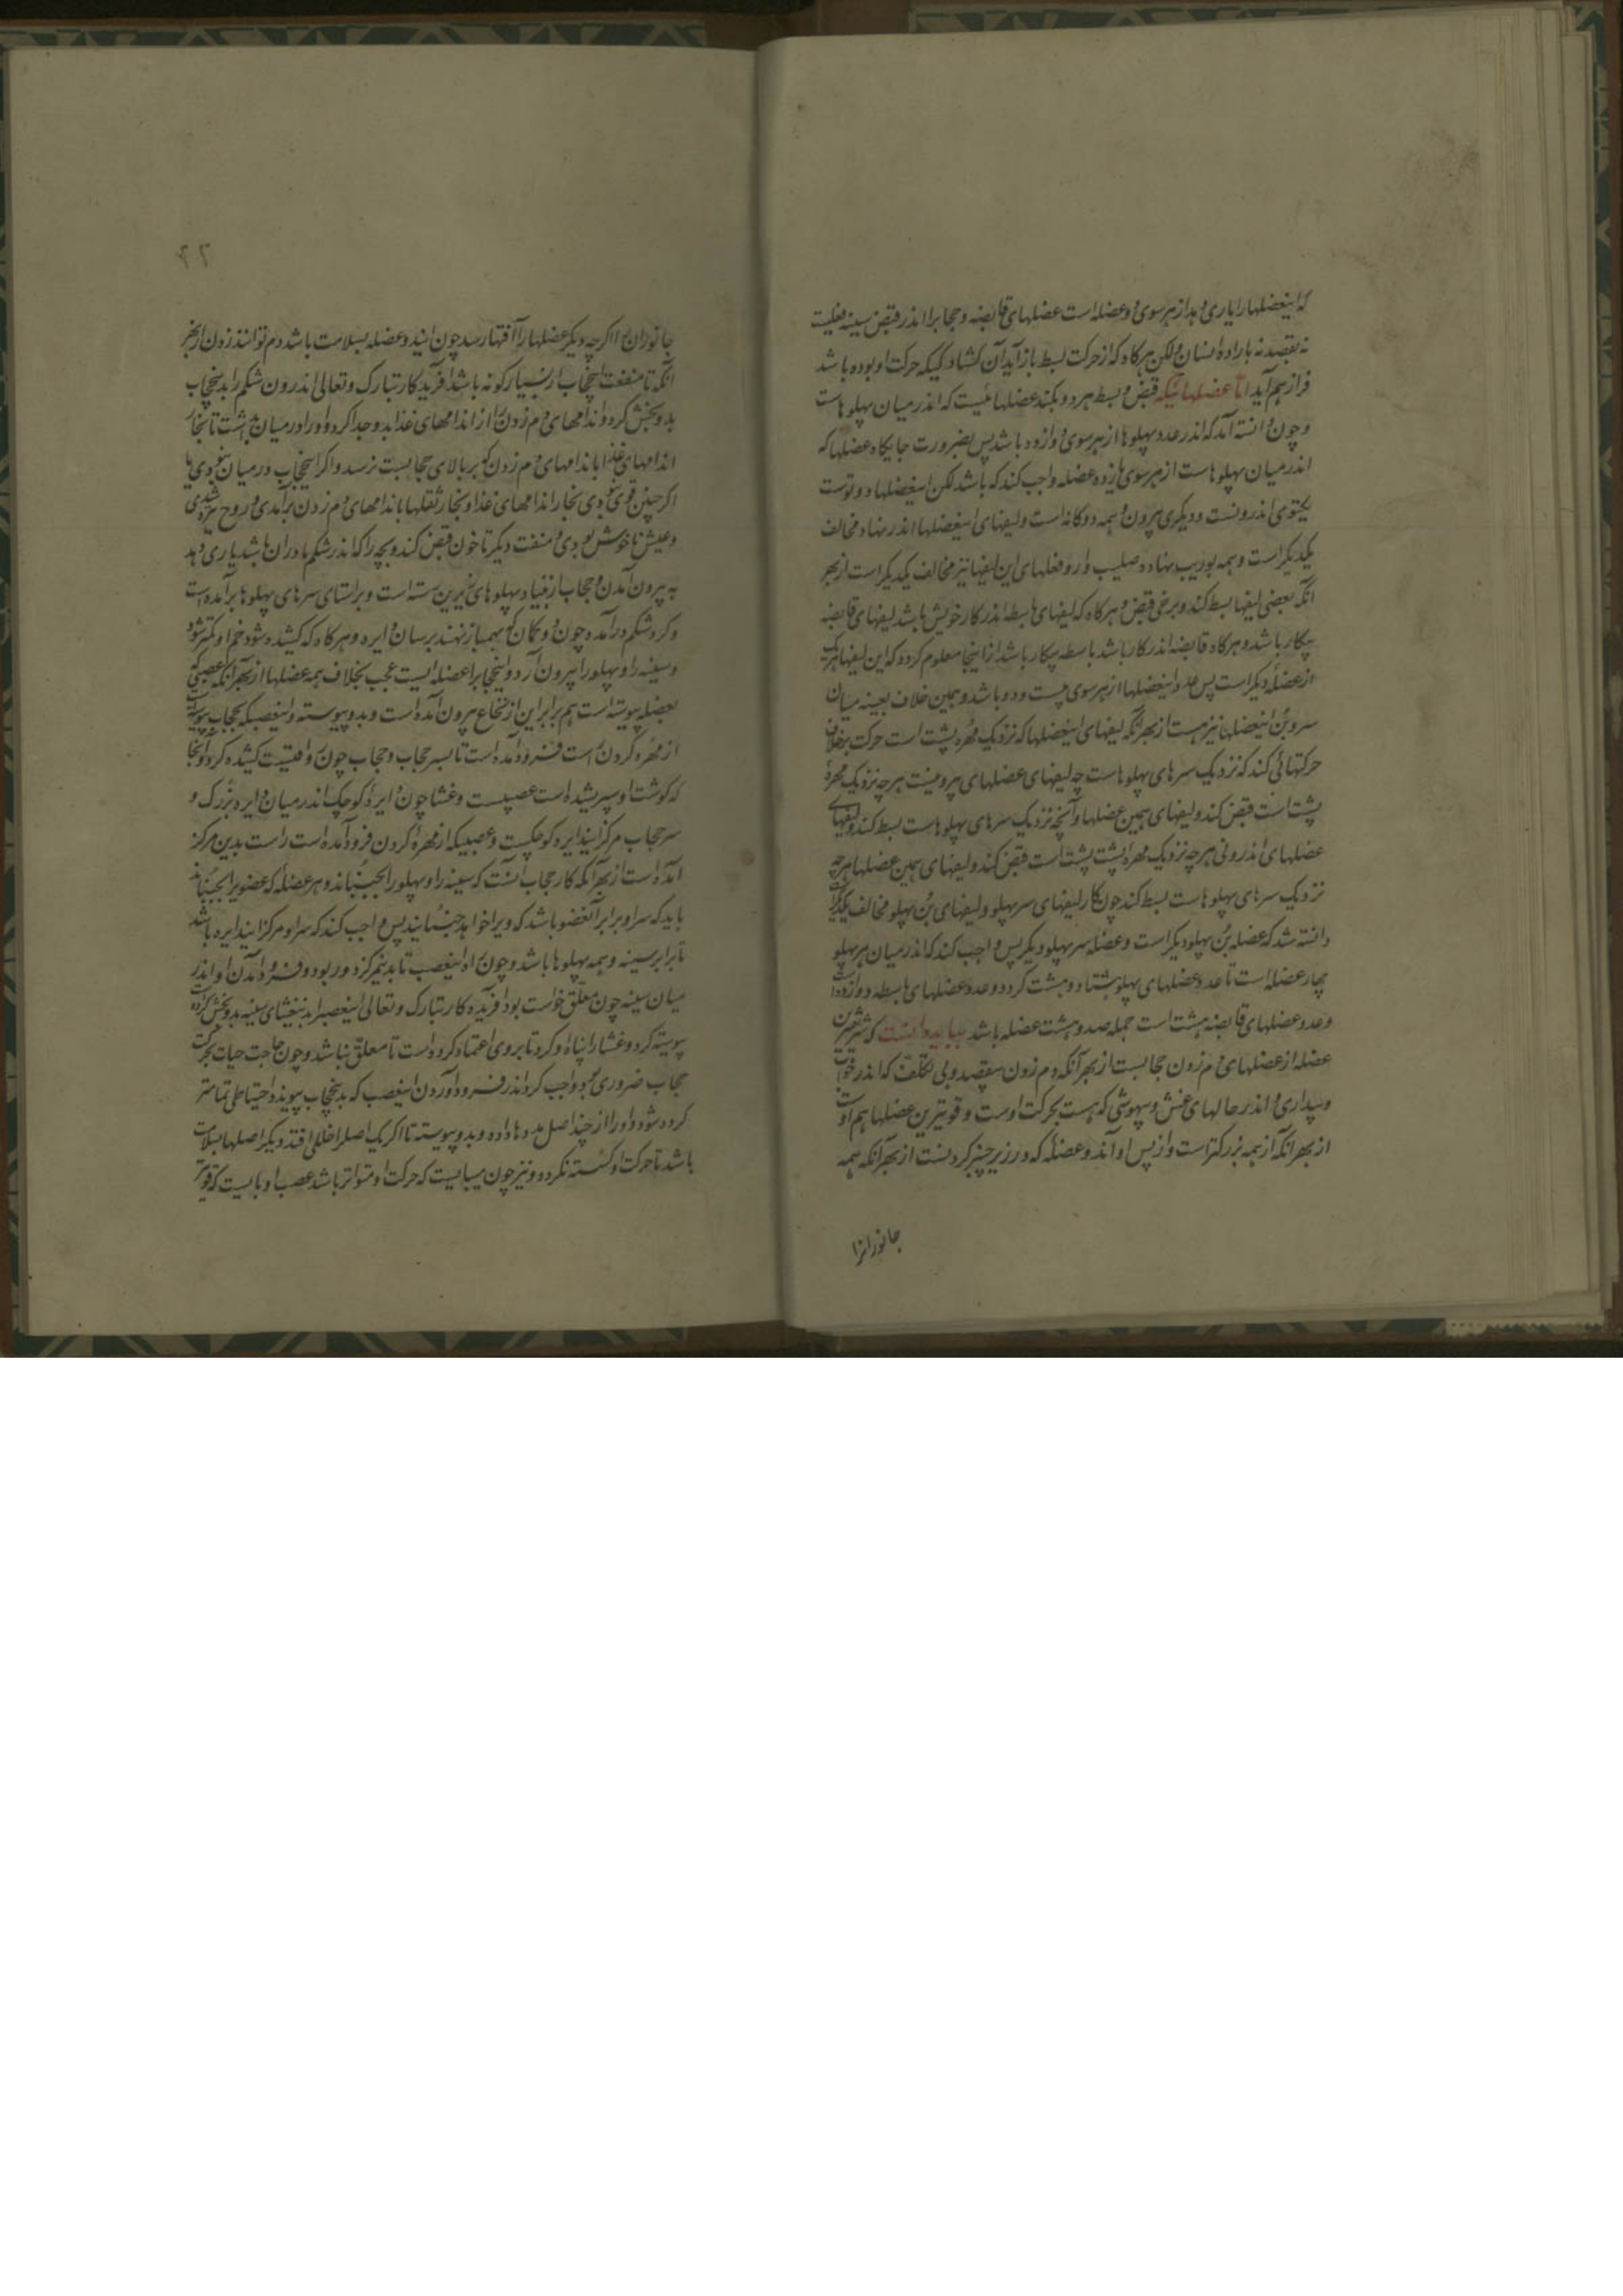 که اینعضلها را یاری دهد از هر سوی دو عضله است عضلهای قابضه و حجاب را اندر قبض سینه فعلیست
نه بقصد نه باراده انسان ولکن هرگاه که از حرکت بسط باز آید آن کشادگی که حرکت او بوده باشد
فراز هم آید اما عضلهائیکه قبض و بسط هر دو بکند عضلهائیست که اندر میان پهلوهاست
و چون دانسته آمد که اندر عدد پهلوها از هر سوی دوازده باشد پس بضرورت جایگاه عضلها که
اندر میان پهلوهاست از هر سوی یازده عضله واجب کند که باشد لکن اینعضلها دو توست
یکتوی اندرونست و دیگری بیرون و همه دوگانه است و لیفهای اینعضلها اندر نهاد مخالف
یکدیگر است و همه بوریب نهاده صلیب وار و فعلهای این لیفها نیز مخالف یکدیگر است از بهر
آنکه بعضی لیفها بسط کند و برخی قبض و هرگاه که لیفهای باسطه اندر کار خویش باشد لیفهای قابضه
بیکار باشد و هرگاه قابضه اندر کار باشد باسطه بیکار باشد از اینجا معلوم گردد که این لیفها هر یک
از عضلهٔ دیگر است پس عدد اینعضلها از هر سوی بیست و دو باشد و همین خلاف بعینه میان
سر و بُن اینعضلها نیز هست از بهر آنکه لیفهای اینعضلها که نزدیک مهره پشت است حرکت بخلاف
حرکتهائی کند که نزدیک سرهای پهلوهاست چه لیفهای عضلهای بیرونیست هر چه نزدیک مهرهٔ
پشت است قبض کند و لیفهای همین عضلها و آنچه نزدیک سرهای پهلوهاست بسط کند و لیفهای
عضلهای اندرونی هر چه نزدیک مهرهٔ پشت است قبض کند و لیفهای همین عضلها هر چه
نزدیک سرهای پهلوهاست بسط کند چون کار لیفهای سر پهلو و لیفهای بُن پهلو مخالف یکدیگر است
دانسته شد که عضله بُن پهلو دیگر است و عضله سر پهلو دیگر پس واجب کند که اندر میان هر پهلو
چهار عضله است تا عدد عضلهای پهلو هشتاد و هشت گردد و عدد عضلهای باسطه دوازده است
و عدد عضلهای قابضه هشت است جمله صد و هشت عضله باشد بباید دانست که شریفترین
عضله از عضلهای دم زدن حجابست از بهر آنکه دم زدن بیقصد و بی تکلف که اندر خواب
و بیداری و اندر حالهای غش و بیهوشی که هست بحرکت اوست و قویترین عضلها هم اوست
از بهر آنکه از همه بزرگتر است و از پس او آندو عضله که در زیر چنبر گردنست از بهر آنکه همه
جانورانرا
۲۲
جانوران را اگر چه دیگر عضلها را آفتها رسد چون ایندو عضله بسلامت باشد دم توانند زدن از بهر
آنکه تا منفعت اینحجاب از بسیار گونه باشد آفریدگار تبارک و تعالی اندرون شکم را بدینحجاب
بدو بخش کرد و اندامهای دم زدن را از اندامهای غذا بدو جدا کرد و او را در میان بداشت تا بخار
اندامهای غذا باندامهای دم زدن که بر بالای حجابست نرسد و اگر اینحجاب در میان نبودی یا
اگر چنین قوی نبودی بخار اندامهای غذا و بخار ثقلها باندامهای دم زدن برآمدی و روح تیره شدی
و عیش ناخوش بودی و منفعت دیگر تا خون قبض کند و بچه را که اندر شکم مادران باشد یاری دهد
به بیرون آمدن و حجاب از بنیاد پهلوهای زیرین رسته است و بر راستای سرهای پهلوها برآمده است
و گرد شکم درآمده چون دو کمان که بهم باز نهند برسان دایره و هرگاه که کشیده شود خم او کمتر شود
و سینه را و پهلو را بیرون آرد و اینحجاب را عضله ایست عجب بخلاف همه عضلها از بهر آنکه عصبی که
بعضله پیوسته است هم برابر این از نخاع بیرون آمده است و بدو پیوسته و اینعصب که بحجاب پیوسته است
از مهرهٔ گردن است فرود آمده است تا بسر حجاب و حجاب چون واقفیست کشیده گرد و آنجا
که گوشت او سپری شده است عصبیست و غشا چون دایرهٔ کوچک اندر میان دایره بزرگ و
سر حجاب مرکز ایندایره کوچکست و عصبیکه از مهرهٔ گردن فرود آمده است راست بدین مرکز
آمده است از بهر آنکه کار حجاب آنست که سینه را و پهلو را بجنباند و هر عضله که عضوی را بجنباند
باید که سر او برابر آنعضو باشد که ویرا خواهد جنبانید پس واجب کند که سر او مرکز ایندایره باشد
تا برابر سینه و همه پهلوها باشد و چون راه اینعصب تا بدینمرکز دور بود و فرود آمدن او اندر
میان سینه چون معلق خواست بود آفریدگار تبارک و تعالی اینعصب را بدینغشای سینه بدو بخش کرده است
پیوسته کرد و غشا را پناه او کرد تا بر وی اعتماد کرده است تا معلق نباشد و چون حاجت حیات بحرکت
حجاب ضروری بود واجب کرد اندر فرود آوردن اینعصب که بدینحجاب پیوندد احتیاطی تمامتر
کرده شود و او را از چند اصل مددها داده و بدو پیوسته تا اگر یک اصل را خللی افتد دیگر اصلها بسلامت
باشد تا حرکت او گسسته نگردد و نیز چون میبایست که حرکت او متواتر باشد عصب او بایست که قویتر